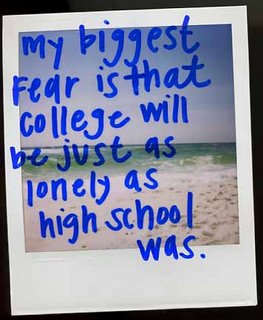 my biggest
Fear is that
college will
be just as
lonely as
high school
was.